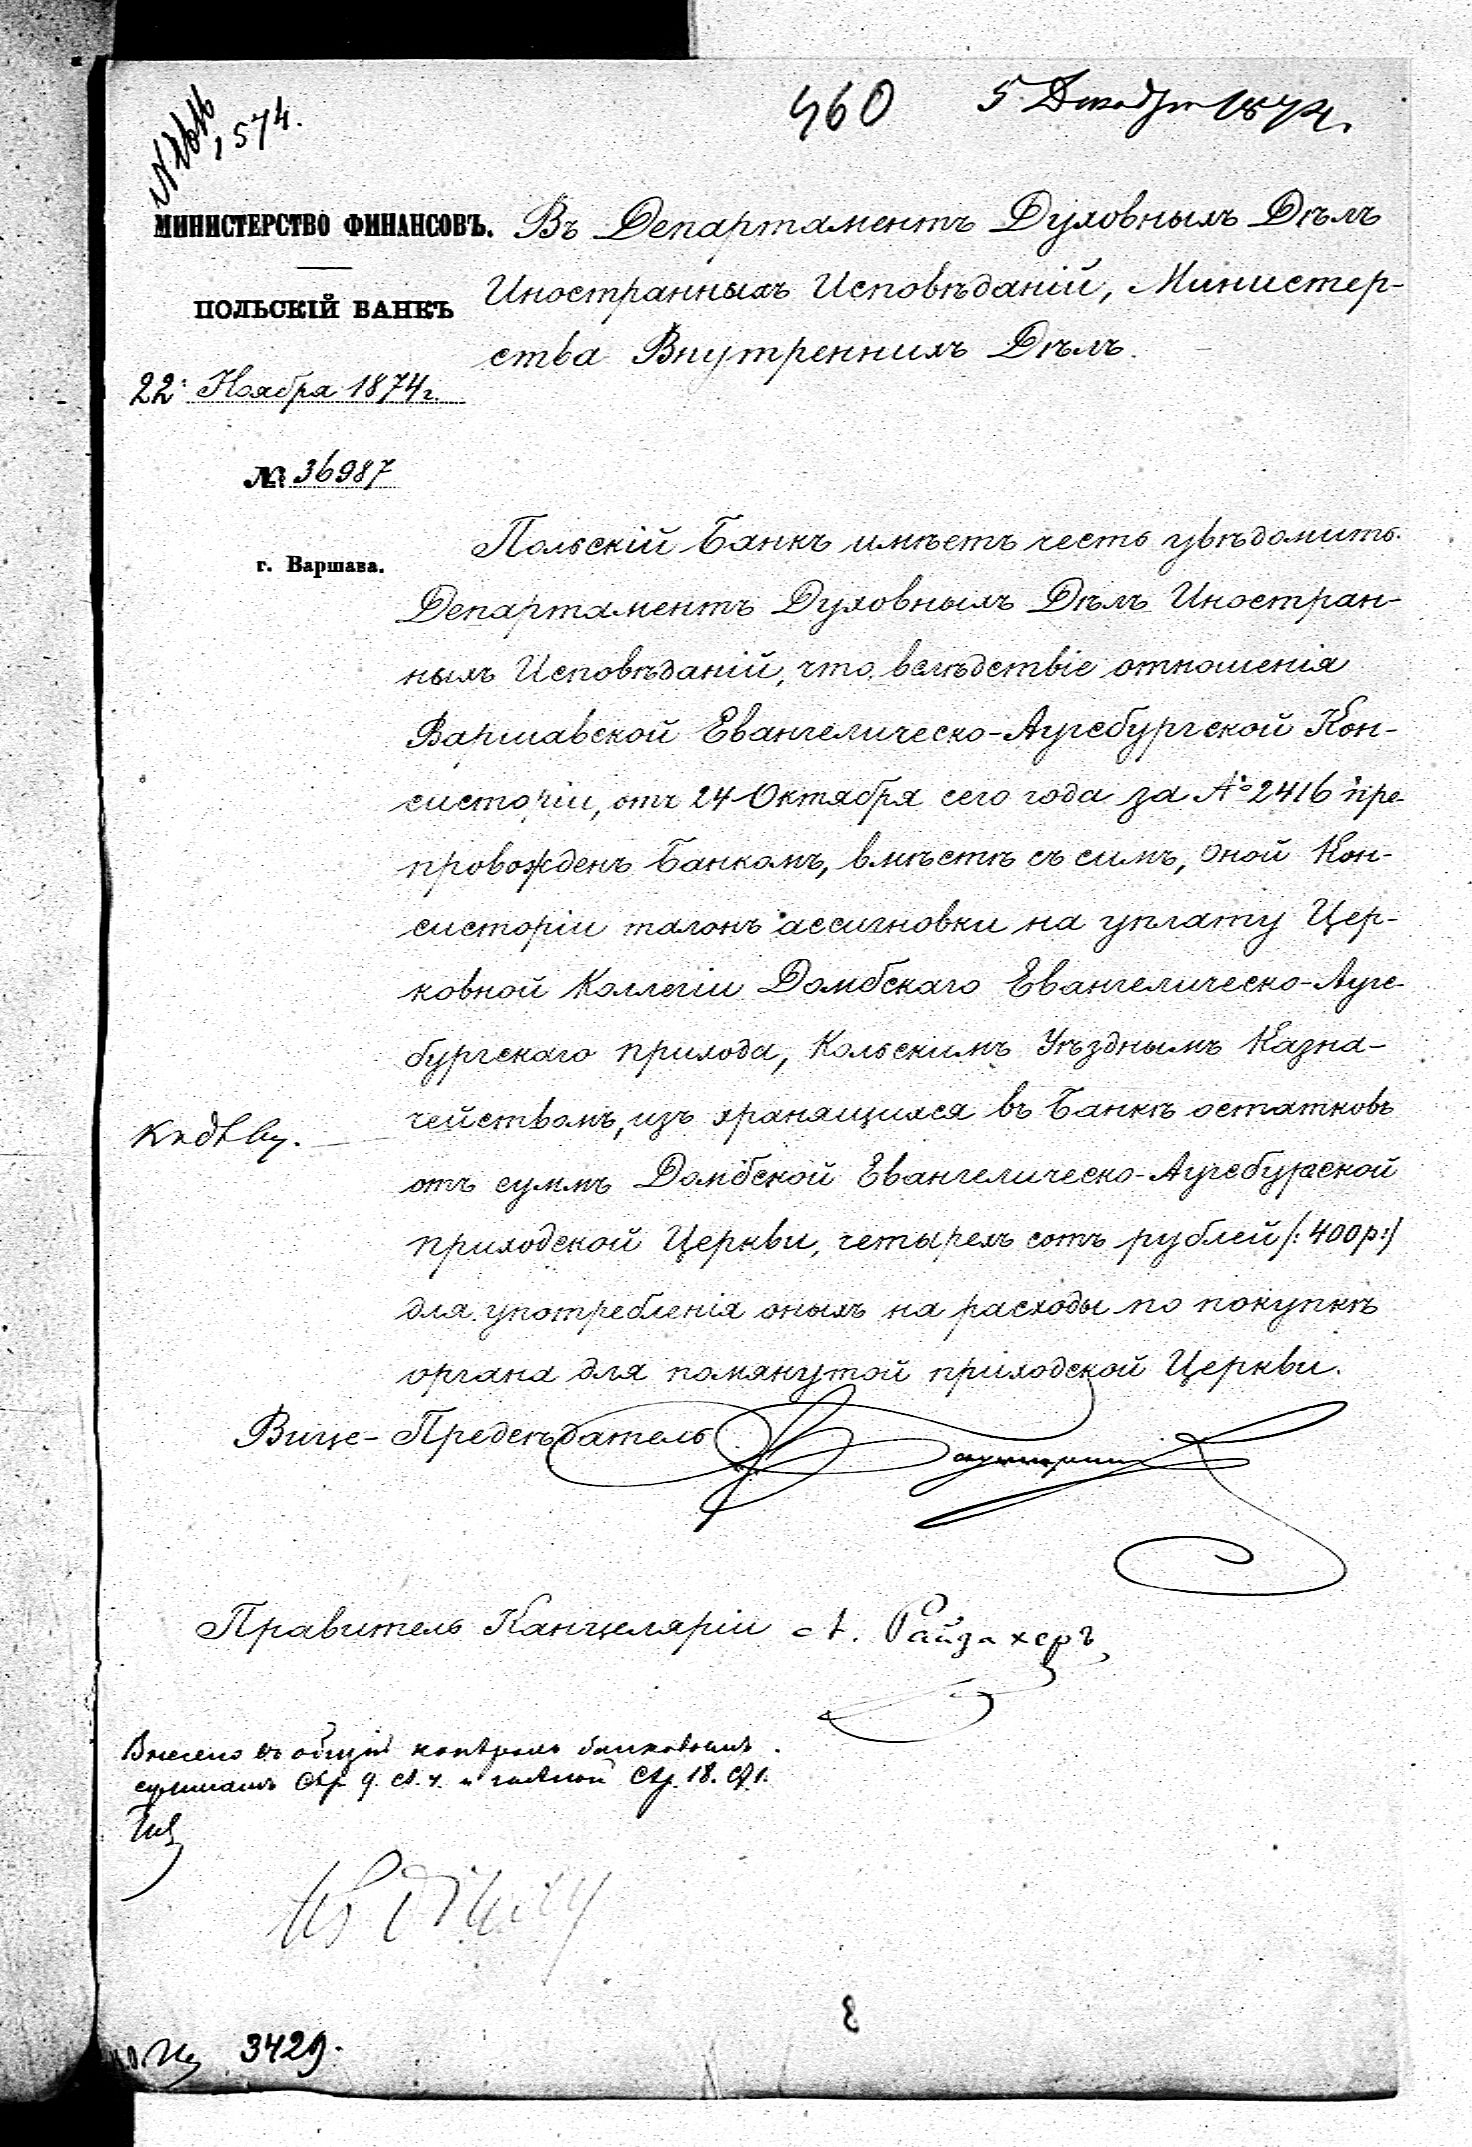 460 5 Декабря 1874.
1574.
МИНИСТЕРСТВО ФИНАНСОВЪ.
ПОЛЬСКІЙ БАНКЪ
22 Ноября 1874 г.
№ 36987
г. Варшава.
Въ Департаментъ Духовныхъ Дѣлъ
Иностранныхъ Исповѣданій, Министер-
ства Внутреннихъ Дѣлъ.
Польскій Банкъ имѣетъ честь увѣдомить
Департаментъ Духовныхъ Дѣлъ Иностран-
ныхъ Исповѣданій, что вслѣдствіе отношенія
Варшавской Евангелическо-Аугсбургской Кон-
систоріи, отъ 24 Октября сего года за № 2416 пре-
провожденъ Банкомъ, вмѣстѣ съ симъ, оной Кон-
систоріи талонъ ассигновки на уплату Цер-
ковной Коллегіи Домбскаго Евангелическо-Аугс-
бургскаго прихода, Кольскимъ Уѣзднымъ Казна-
чействомъ, изъ хранящихся въ Банкѣ остатковъ
отъ суммъ Домбской Евангелическо-Аугсбургской
приходской Церкви, четырехъ сотъ рублей /: 400 р :/
для употребленія оныхъ на расходы по покупкѣ
органа для помянутой приходской Церкви.
Къ дѣлу.
Вице-Предсѣдатель
Правитель Канцеляріи А. Райзахеръ
Внесено въ общій контроль банковымъ
суммамъ Стр. 9. и Стр. 18.
3429.